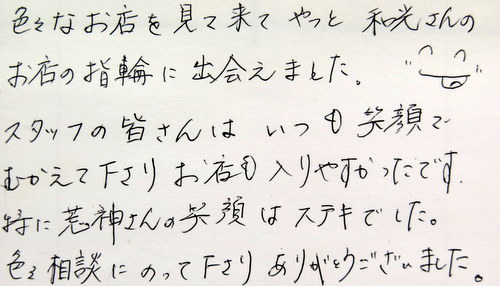 色々なお店を見て来て やっと 和光さんの
お店の指輪に出会えました。
スタッフの皆さんは いつも 笑顔で
むかえて下さり お店も入りやすかったです.
特に荒神さんの笑顔はステキでした。
色々相談にのって下さり ありがとうございました。